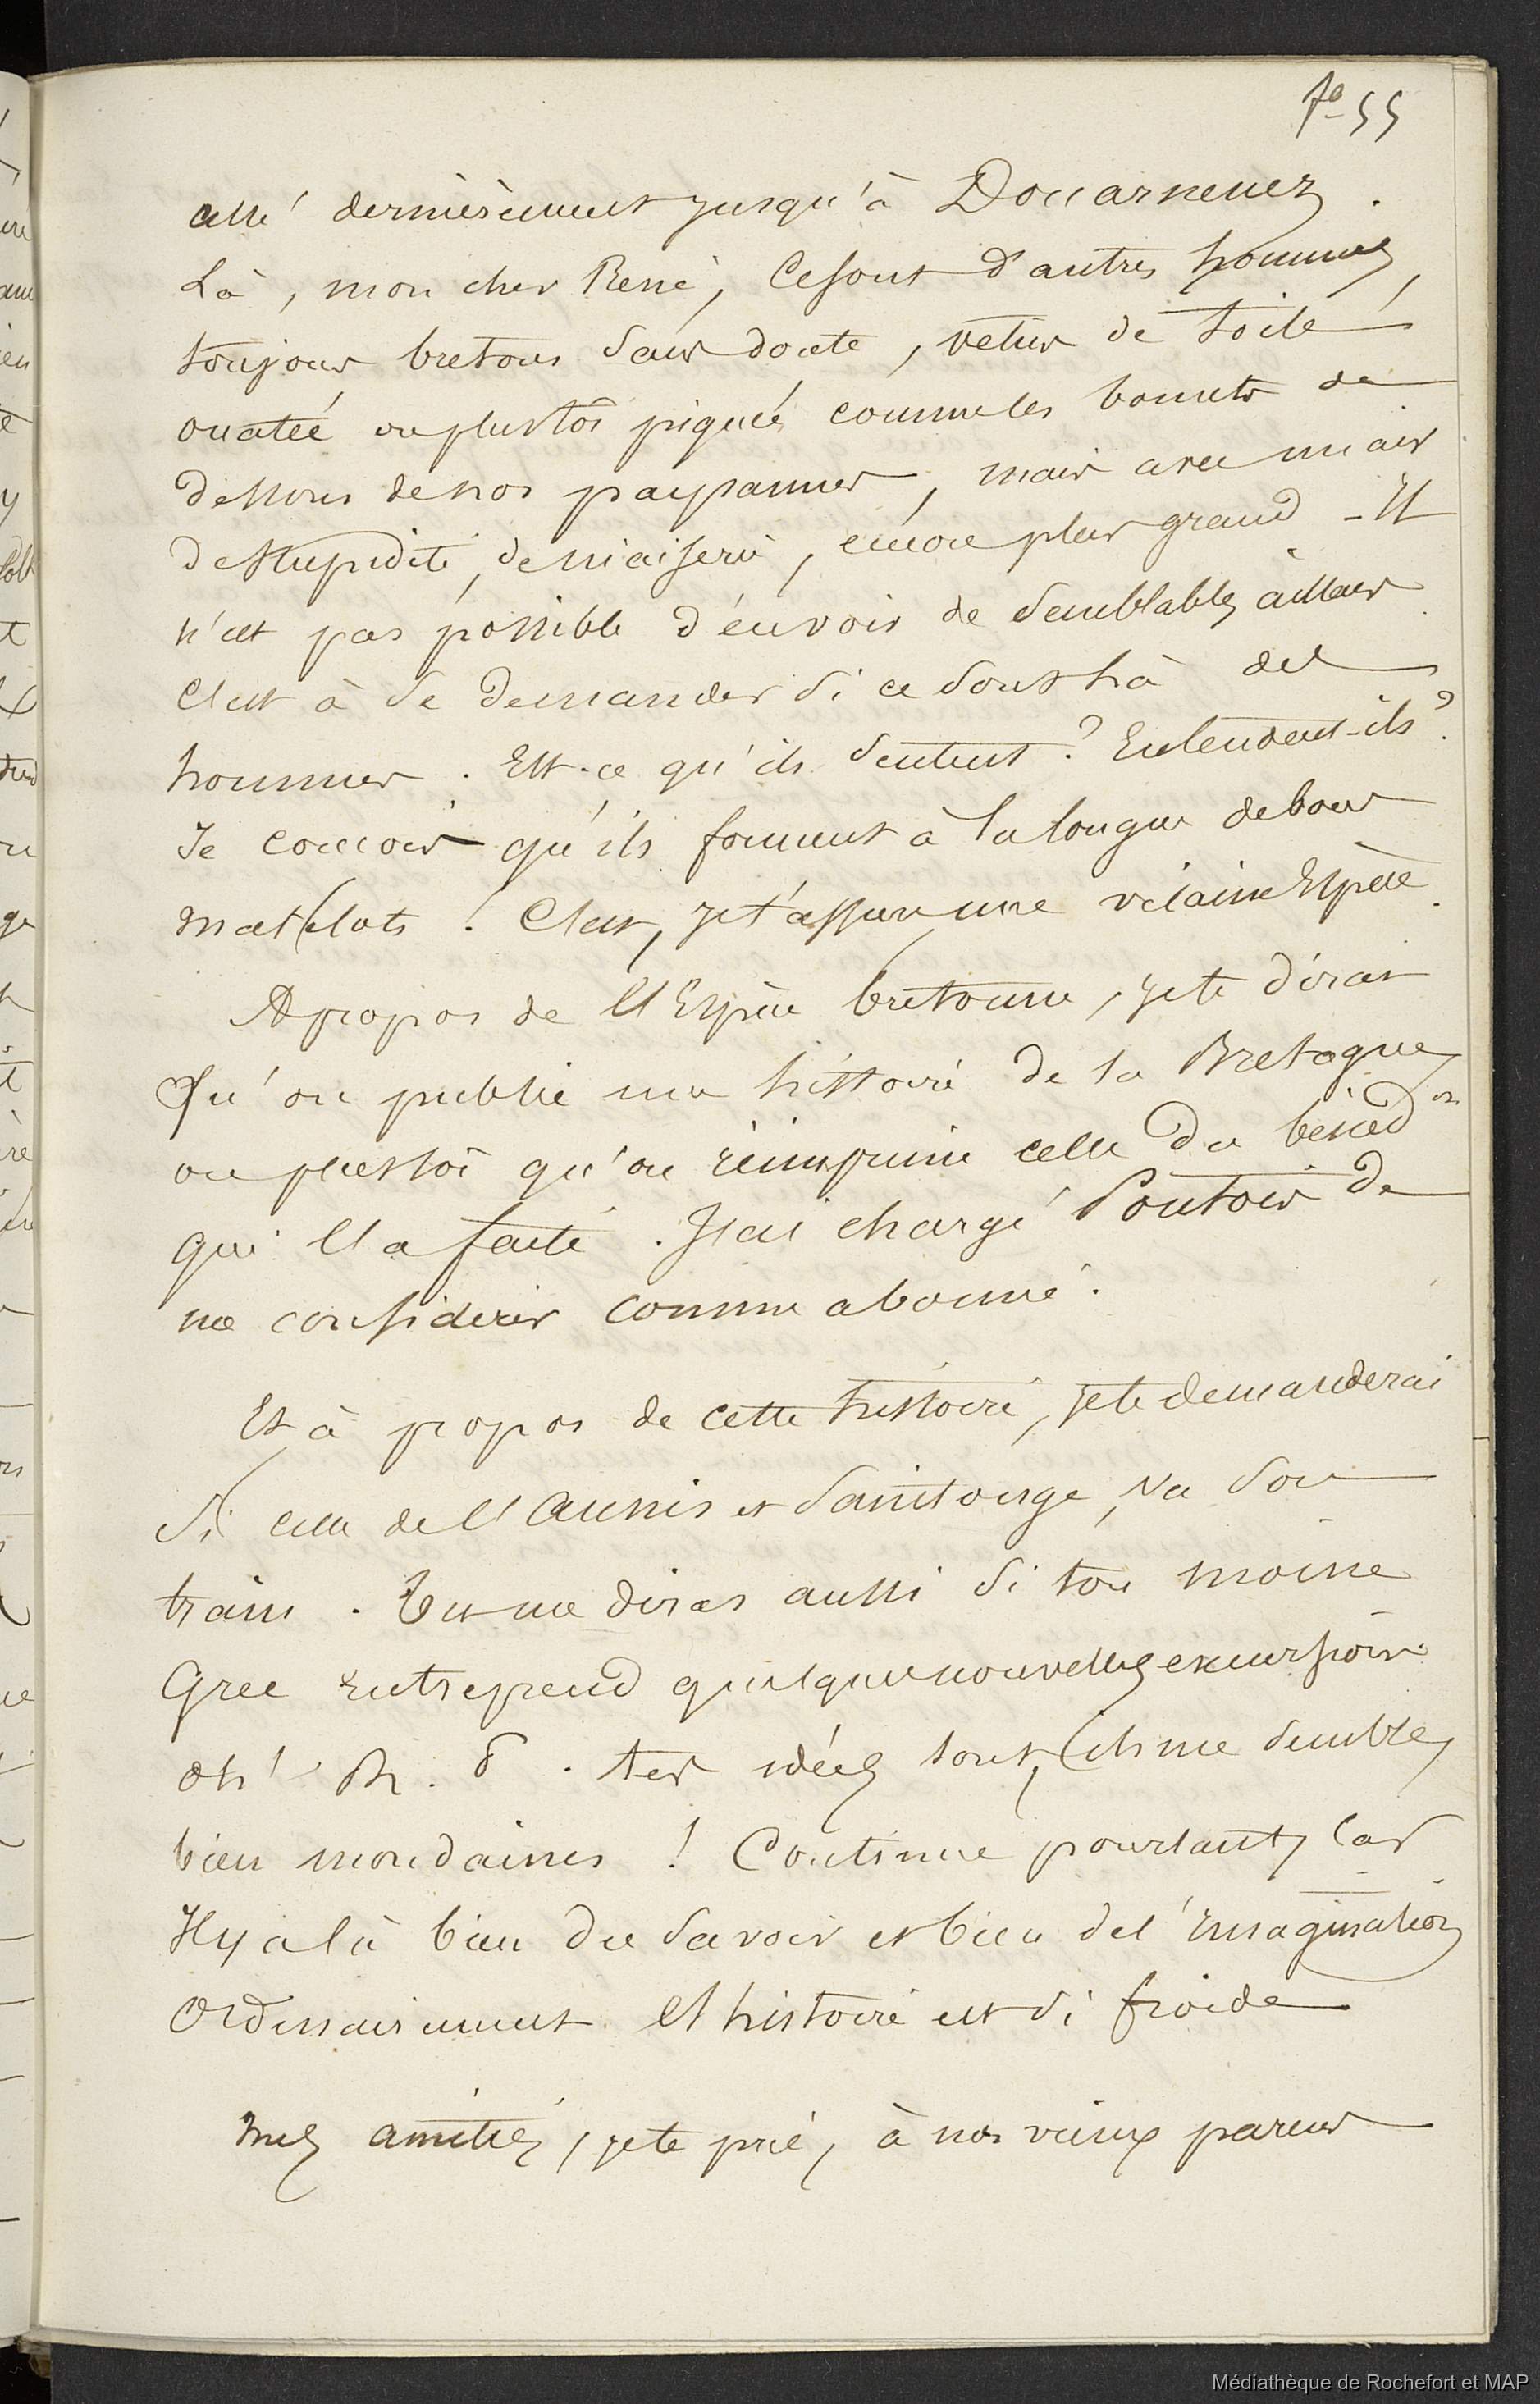 fo 55
allé dernièrement jusqu'à Douarnenez.
Là, mon cher René, ce sont d'autres hommes,
toujours bretons sans doute, vêtus de toile
ouatée ou plustôt piquée comme les bonnets de
dessous de nos paysannes, mais avec un air
de stupidité, de niaiserie, encore plus grand - Il
n'est pas possible d'en voir de semblables ailleurs
C'est à se demander si ce sont là des
hommes. Est-ce qu'ils sentent? Entendent-ils?
Je conçois qu'ils forment à la longue de bons
matelots! C'est, je t'assure, une vilaine Espèce.
A propos de l'Espèce bretonne, je te dirai
Qu'on publie une histoire de la Bretagne,
ou plustôt qu'on réimprime celle du bénéd on
qui l'a faite. J'ai chargé de
me considérer comme abonné.
Et, à propos de cette histoire, je te demanderai
si celle de l'Aunis et Saintonge, va son
train. Tu me diras aussi si ton moine
Grec Entreprend quelques nouvelles excursions
oh! R. P. tes idées sont, ils me semble,
bien mondaines! Continue pourtant, car
Il y a là bien du savoir et bien de l'Imagination
Ordinairement l'histoire est si froide
Mes amitiés, je te prie, à nos vieux parens
Médiathèque de Rochefort et MAP